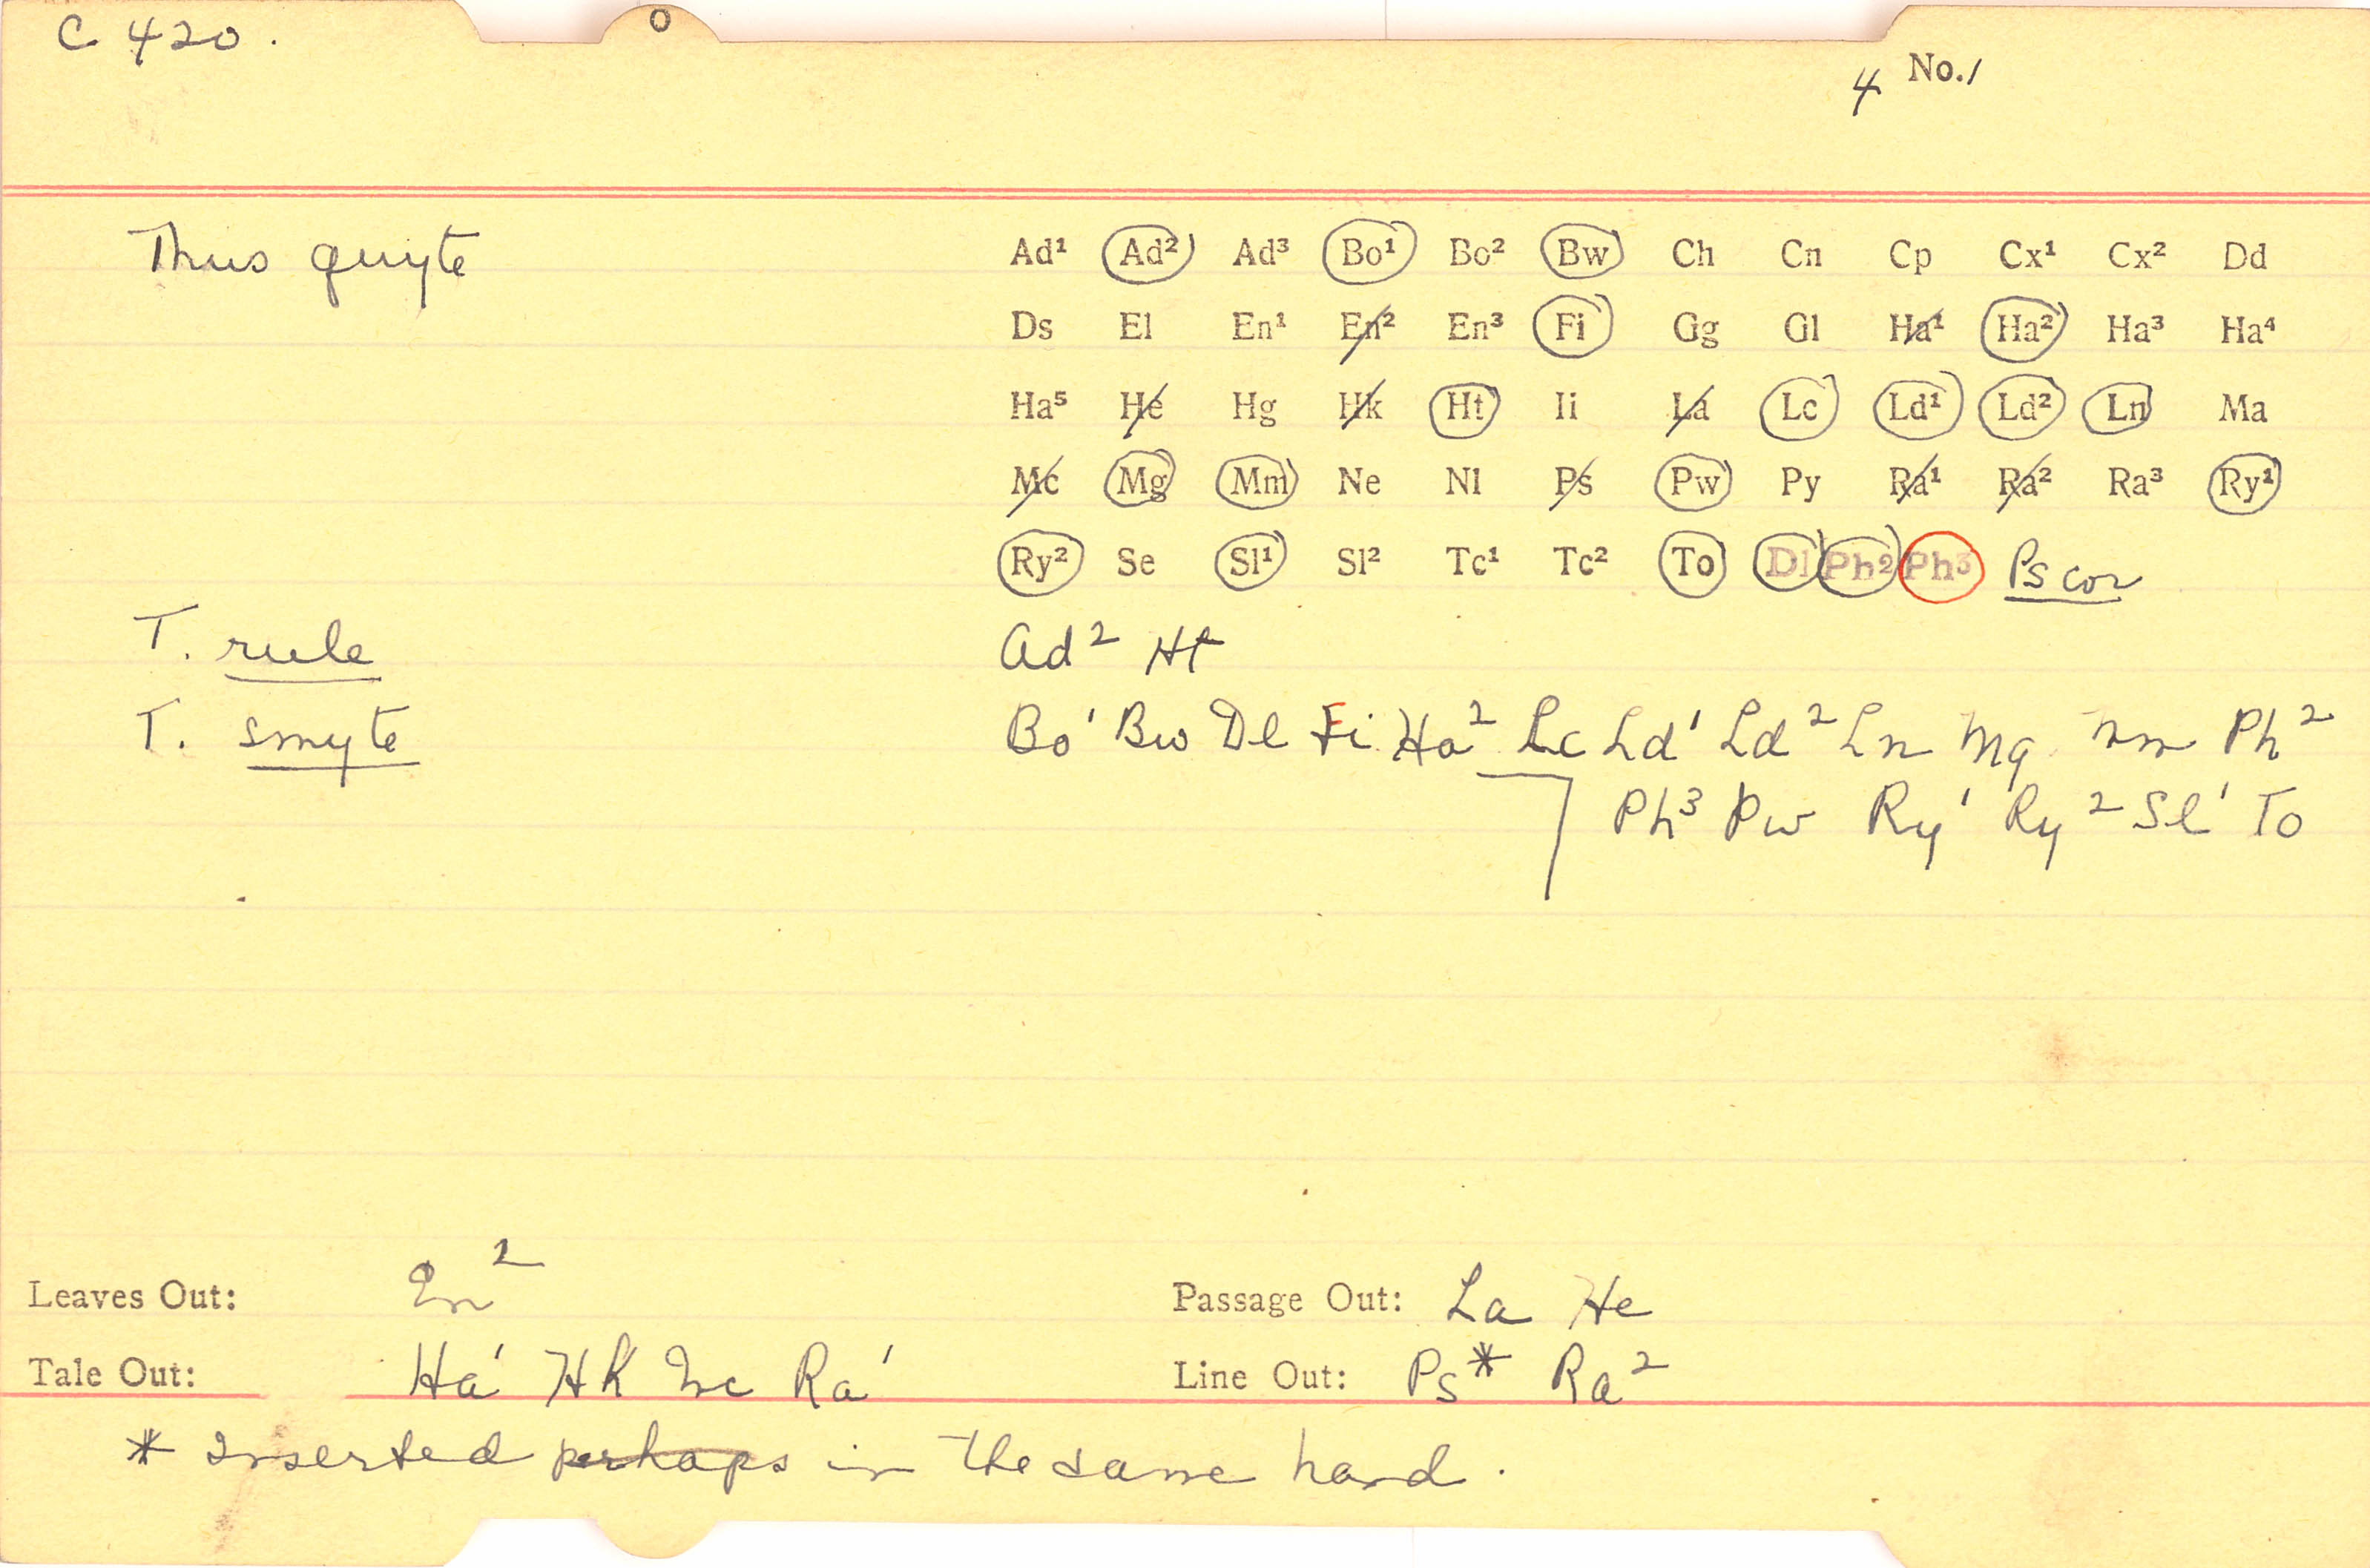 C 420.
4 No. 1
Thus quyte
Ad¹ Ad² Ad³ Bo¹ Bo² Bw Ch Cn Cp Cx¹ Cx² Dd
Ds El En¹ En² En³ Fi Gg Gl Ha¹ Ha² Ha³ Ha⁴
Ha⁵ He Hg Hk Ht Ii La Lc Ld¹ Ld² Ln Ma
Mc Mg Mm Ne Nl Ps Pw Py Ra¹ Ra² Ra³ Ry¹
Ry² Se Sl¹ Sl² Tc¹ Tc² To Dl Ph2 Ph3 Ps cor
T. rule Ad² Ht
T. smyte Bo¹ Bw Dl Fi Ha² Lc Ld¹ Ld² Ln Mg Mm Ph²
Ph³ Pw Ry¹ Ry² Sl¹ To
Leaves Out: En² Passage Out: La He
Tale Out: Ha¹ Hk Mc Ra¹ Line Out: Ps* Ra²
* Inserted perhaps in the same hand.